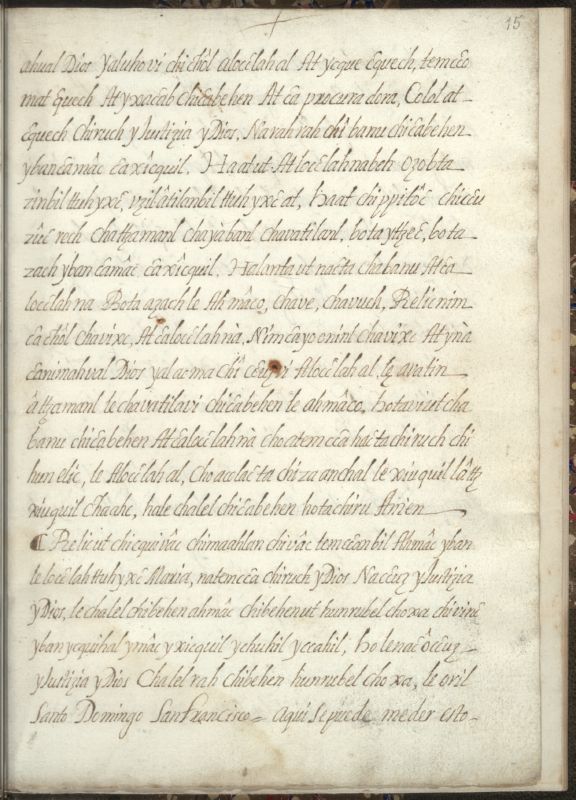 15
ahual Dios yaluhovi chi chôl aloc̄lahal At ycque c̄quech, temc̄c̄o
mat c̄quech At yxc̄ac̄ab chic̄abehen At c̄a procuradora, Colol at
c̄quech Chiruch y Justizia y Dios. Narahrah chi banu chic̄abehen
ybanc̄amâc c̄axicquil. Haat ut At loc̄lahnabeh
tinbil ttuh yxc̄, ttuh yxc̄ at, haat chi ppitoc̄
rech chattzamanl chayàbanl chavatilanl, bota yttzec̄, bota
zach yban c̄amâc c̄axicquil. Halunta ut nac̄ta chabanu At c̄a
loc̄lahna Bota azach le Ahmâco, chave, chavuch, Relic nim
c̄achôl chavixc, At c̄aloc̄lahnà, Nim cayo onint chavixc At ynà
c̄animahval Dios yalacma chi Aloc̄lahal, le avatin
âttzamanl lechavatilavi chic̄abehen le ahmâco. hotavi ut cha
banu chic̄abehen At c̄aloc̄lahnà choatemcc̄a hac̄ta chiruch chi
hunelic, le Aloc̄lahal, choacolac̄ta chizaanchal lê xiuquil lâttz
xiuquil chaahc, hale chalel chic̄abehen hotachiru Arien
Relic ut chicquivâc chimaatlan chivâc temc̄c̄anbil Ahmâc yban
le loc̄lah ttuhyxc̄ Maria, natemcc̄a chiruch y Dios Nac̄c̄uz y Justizia
y Dios, lechalel chibehen ahmâc chibehenut hunrubel choxa chivinc̄
yban ycquihal ymâc yxicquil ychukil ycrahil, ho lenac̄ôcc̄uz
y Justizia y Dios Chalel rah chibehen hunrubel choxa, le oril
Santo Domingo San Francisco = Aqui se puede meder esto